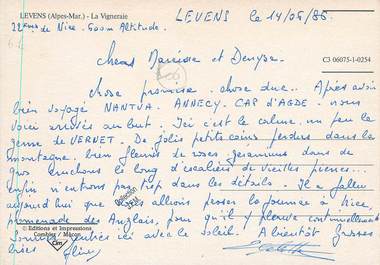 LEVENS (Alpes-Mar.) - La Vigneraie
LEVENS le 14/06/86
22 Kms de Nice - 600m Altitude.
C3 06075-1-0254
Chers Narcisse et Denyse.
Chose promise - chose due. Après avoir
bien voyagé NANTUA. ANNECY. CAP d'AGDE. nous
voici arrivés au but. Ici c'est le calme, un peu le
genre de VERNET. De jolis petits coins perdus dans la
montagne, bien fleuris de roses, géraniums dans de
gros cruchons le long d'escaliers de vieilles pierres...
enfin n'entrons pas trop dans les détails. Il a fallu
aujourd'hui que nous allions passer la journée à Nice,
promenade des Anglais, pour qu'il y pleuve continuellement
Sommes rentrés ici avec le soleil. A bientôt Grosses
bises
© Editions et Impressions
Combier / Mâcon
cim
Collection